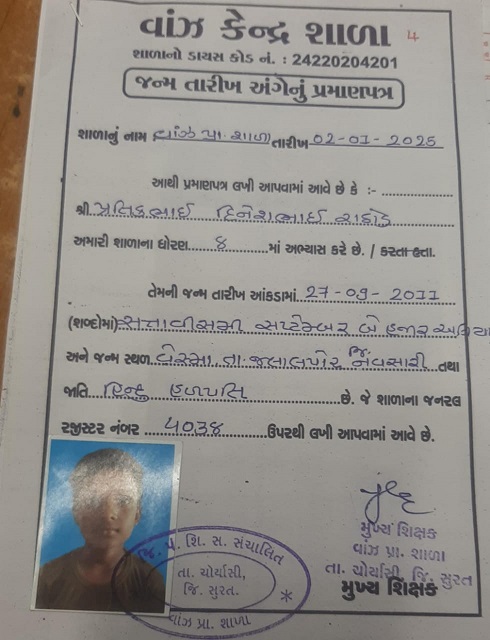 વાંઝ કેન્દ્ર શાળા ૪
શાળાનો ડાયસ કોડ નં. : 24220204201
જન્મ તારીખ અંગેનું પ્રમાણપત્ર
શાળાનું નામ વાંઝ પ્રા. શાળા તારીખ 02-01-2025
આથી પ્રમાણપત્ર લખી આપવામાં આવે છે કે :- ....................
શ્રી પ્રતિકભાઈ દિનેશભાઈ રાઠોડ
અમારી શાળાના ધોરણ ........ ૪ ........ માં અભ્યાસ કરે છે. / કરતા હતા.
તેમની જન્મ તારીખ આંકડામાં 27-09-2011
(શબ્દોમાં) સત્તાવીસમી સપ્ટેમ્બર બે હજાર અગિયા
અને જન્મ સ્થળ તા. જલાલપોર જિ. નવસારી તથા
જાતિ હિન્દુ હળપતિ છે. જે શાળાના જનરલ
રજીસ્ટર નંબર 4038 ઉપરથી લખી આપવામાં આવે છે.
મુખ્ય શિક્ષક
વાંઝ પ્રા. શાળા
તા. ચોર્યાસી, જિ. સુરત
મુખ્ય શિક્ષક
જી. પં. શિ. સ. સંચાલિત
તા. ચોર્યાસી,
જિ. સુરત.
*
વાંઝ પ્રા. શાળા